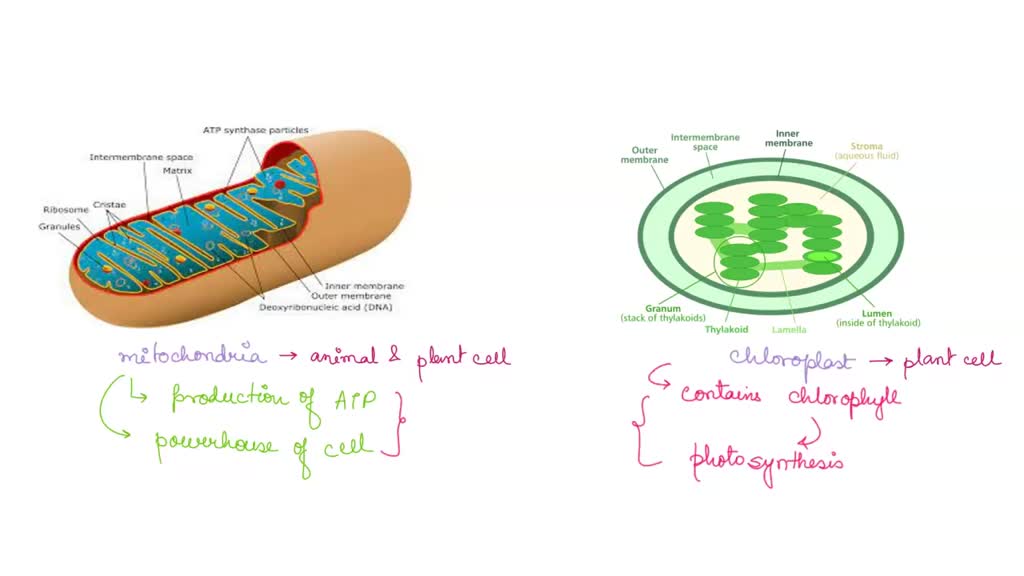 ATP synthase particles
Intermembrane space
Matrix
Cristae
Ribosome
Granules
Inner membrane
Outer membrane
Deoxyribonucleic acid (DNA)
mitochondria → animal & plant cell
production of ATP
powerhouse of cell
Inner
membrane
Intermembrane
space
Outer
membrane
Stroma
(aqueous fluid)
Granum
(stack of thylakoids)
Thylakoid
Lamella
Lumen
(inside of thylakoid)
chloroplast → plant cell
contains chlorophyll
photosynthesis